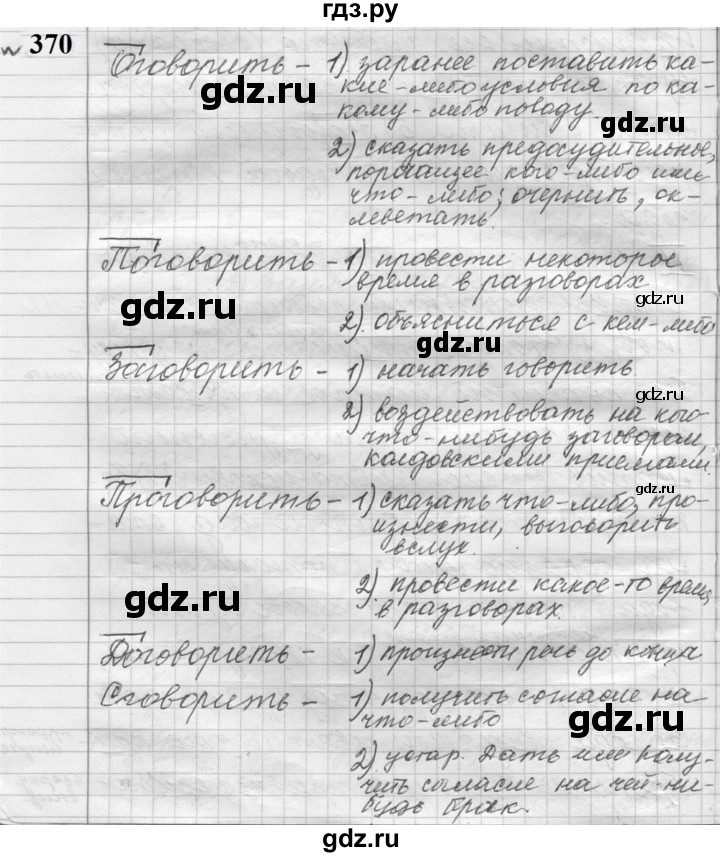 гдз.ру
№ 370
Оговорить – 1) заранее поставить ка-
кие-либо условия по ка-
gdz.ru
кому-либо поводу.
gdz.ru
2) сказать предосудительное,
порочащее кого-либо или
что-либо; очернить, ок-
леветать.
Поговорить – 1) провести некоторое
время в разговорах
gdz.ru
gdz.ru
2) объясниться с кем-либо
gdz.ru
Заговорить – 1) начать говорить
gdz.ru
2) воздействовать на кого
что-нибудь заговорами,
колдовскими приемами.
Проговорить – 1) сказать что-либо, про-
gdz.ru
изнести, выговорить
вслух.
2) провести какое-то время
gdz.ru
в разговорах.
Договорить – 1) произнести речь до конца
gdz.ru
Сговорить – 1) получить согласие на
что-либо
gdz.ru
2) устар. Дать или полу-
чить согласие на чей-ни-
gdz.ru
будь брак.
гдз.ру